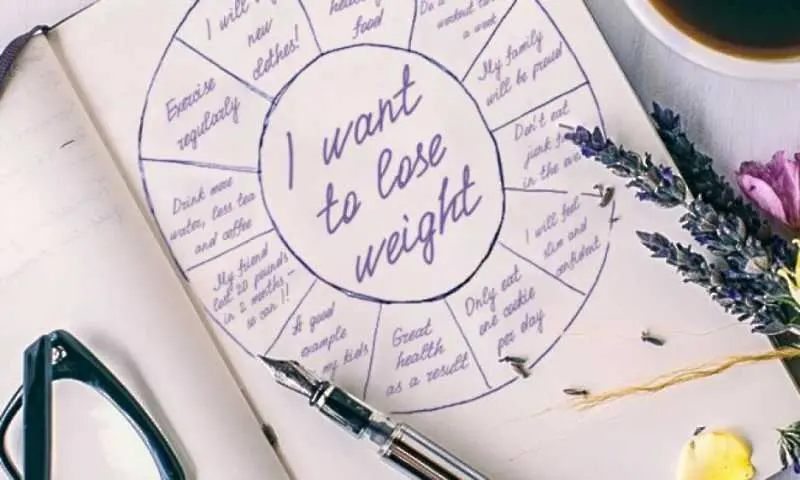 I want
to lose
weight
I will
new
clothes!
food
workout
a week
My family
will be proud
Don't eat
junk
in the
I will feel
slim and
confident
Only eat
one cookie
per day
Great
health
as a result
A good
example
my kids
My friend
lost 20 pounds
in 2 months –
so can I!
Drink more
water, less tea
and coffee
Exercise
regularly